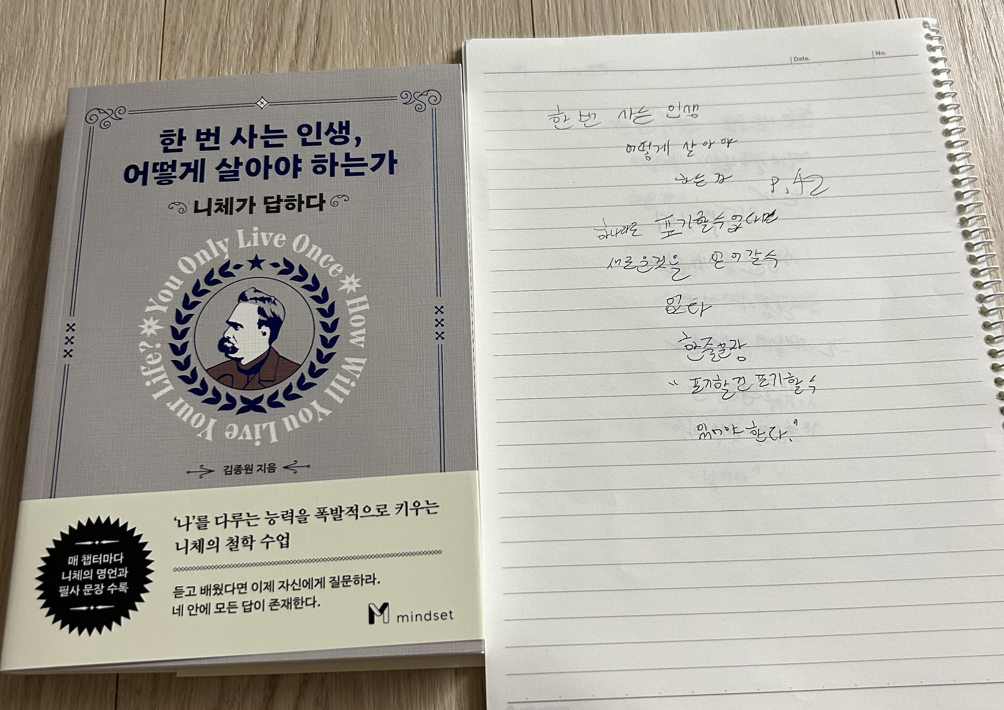 한 번 사는 인생,
어떻게 살아야 하는가
니체가 답하다
You Only Live Once
How Will You Live Your Life?
김종원 지음
매 챕터마다
니체의 명언과
필사 문장 수록
'나'를 다루는 능력을 폭발적으로 키우는
니체의 철학 수업
듣고 배웠다면 이제 자신에게 질문하라.
네 안에 모든 답이 존재한다.
mindset
Date.
No.
한 번 사는 인생
어떻게 살아야
하는가 P.42
하나라도 포기할수없다면
새로운것을 얻어갈수
없다
한줄문장
" 포기할건 포기할수
있어야 한다."